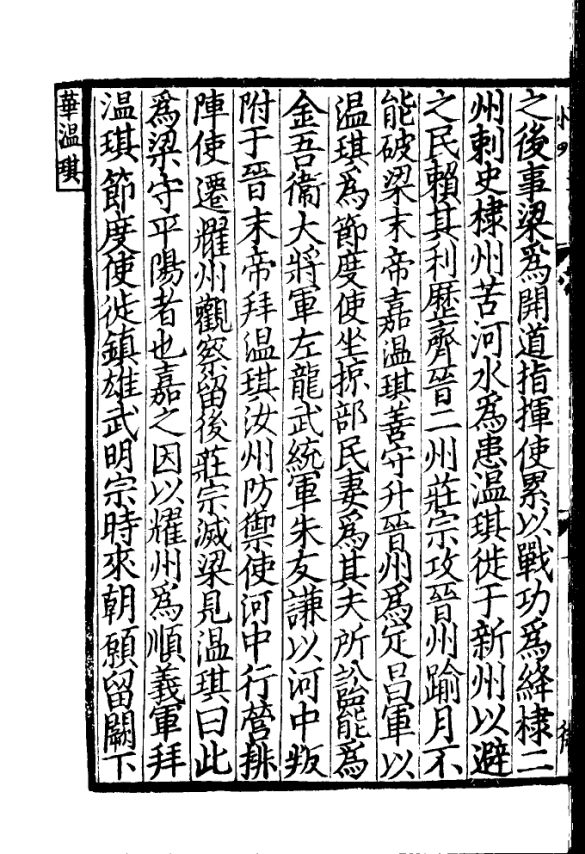 之後事梁為開道指揮使累以戰功為絳棣二
州刺史棣州苦河水為患溫琪徙于新州以避
之民賴其利歷齊晉二州莊宗攻晉州踰月不
能破梁末帝嘉溫琪善守升晉州為定昌軍以
温琪為節度使坐掠部民妻為其夫所訟罷為
金吾衞大將軍左龍武統軍朱友謙以河中叛
附于晉末帝拜温琪汝州防禦使河中行營排
陣使遷耀州觀察留後莊宗滅梁見温琪曰此
為梁守平陽者也嘉之因以耀州為順義軍拜
温琪節度使徙鎮雄武明宗時來朝願留闕下
華温琪